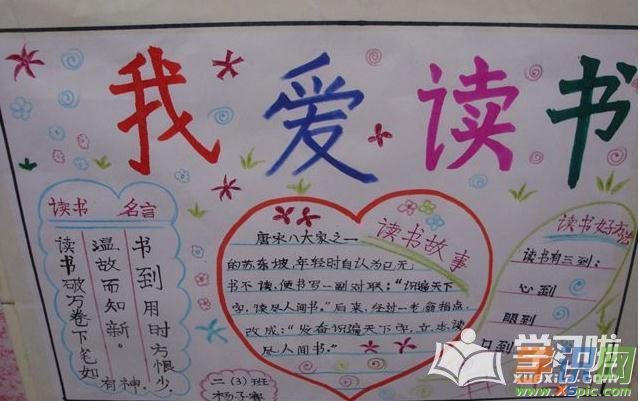 我爱读书
读书 名言
书到用时方恨少。
温故而知新。
读书破万卷下笔如
有神.
读书故事
唐宋八大家之一
的苏东坡,年轻时自认为已无
书不读,便书写一副对联:“识遍天下
字,读尽人间书。”后来,经过一老翁指点,
改成:“发奋识遍天下字,立志读
尽人间书。”
二(3)班
读书好方法
读书有三到:
心到
眼到
口到
学习啦
www.xuexila.com
www.xspic.com